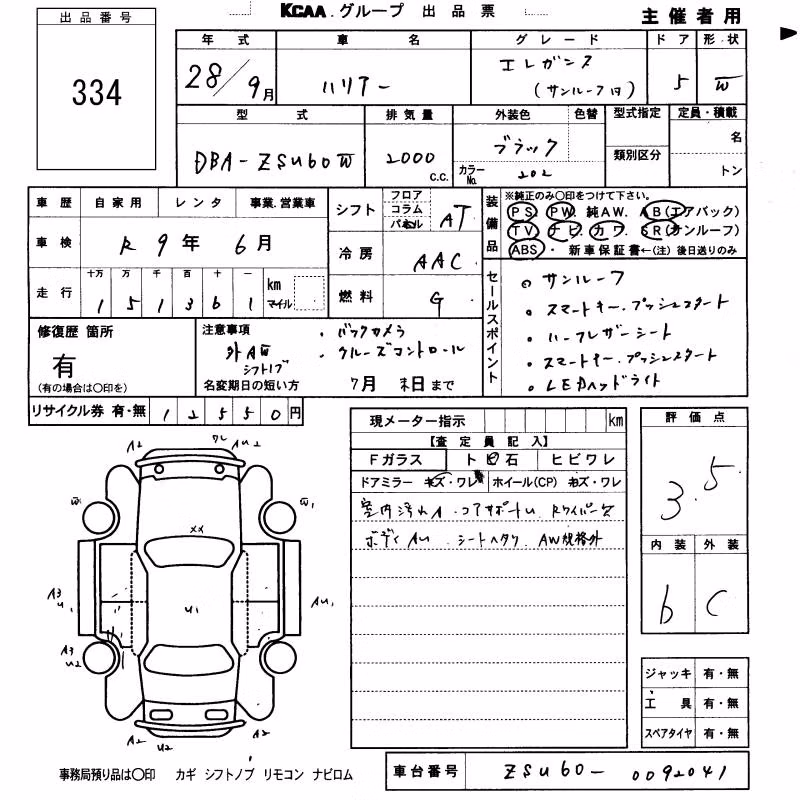 出品番号
334
KCAA.グループ 出品票
主催者用
年式 車名 グレード ドア 形状
28/9月 ハリアー エレガンス (サンルーフ付) 5 W
型式 排気量 外装色 色替 型式指定 定員・積載
DBA-ZSU60W 2000 C.C. ブラック カラーNo. 202 類別区分 名 トン
車歴 自家用 レンタ 事業.営業車
車検 R9年 6月
走行 十万 万 千 百 十 一 km マイル
1 5 1 3 6 1
シフト フロア コラム パネル AT
冷房 AAC
燃料 G
装備品 ※純正のみ〇印をつけて下さい。
PS. PW. 純AW. AB(エアバック)
TV. ナビ. カワ. SR(サンルーフ)
ABS. 新車保証書←(注) 後日送りのみ
セールスポイント
・サンルーフ
・スマートキー.プッシュスタート
・ハーフレザーシート
・スマートキー.プッシュスタート
・LEDヘッドライト
修復歴 箇所
有
(有の場合は〇印を)
注意事項
・バックカメラ
外AW
・クルーズコントロール
シフトノブ
名変期日の短い方 7月 末日まで
リサイクル券 有・無 12550円
現メーター指示 km
【査定員記入】
Fガラス トビ石 ヒビワレ
ドアミラー キズ・ワレ ホイール(CP) キズ・ワレ
室内汚れA. コアサポートU. Rワイパー欠
ボディAU. シートヘタリ. AW規格外
評価点
3.5
内装 外装
b C
ジャッキ 有・無
工具 有・無
スペアタイヤ 有・無
A2 ワレ AU2
W W1
XX
A3 U1 U1 AU1
A3 U2
A2 U2 A2
事務局預り品は〇印 カギ シフトノブ リモコン ナビロム
車台番号 ZSU60-0092041